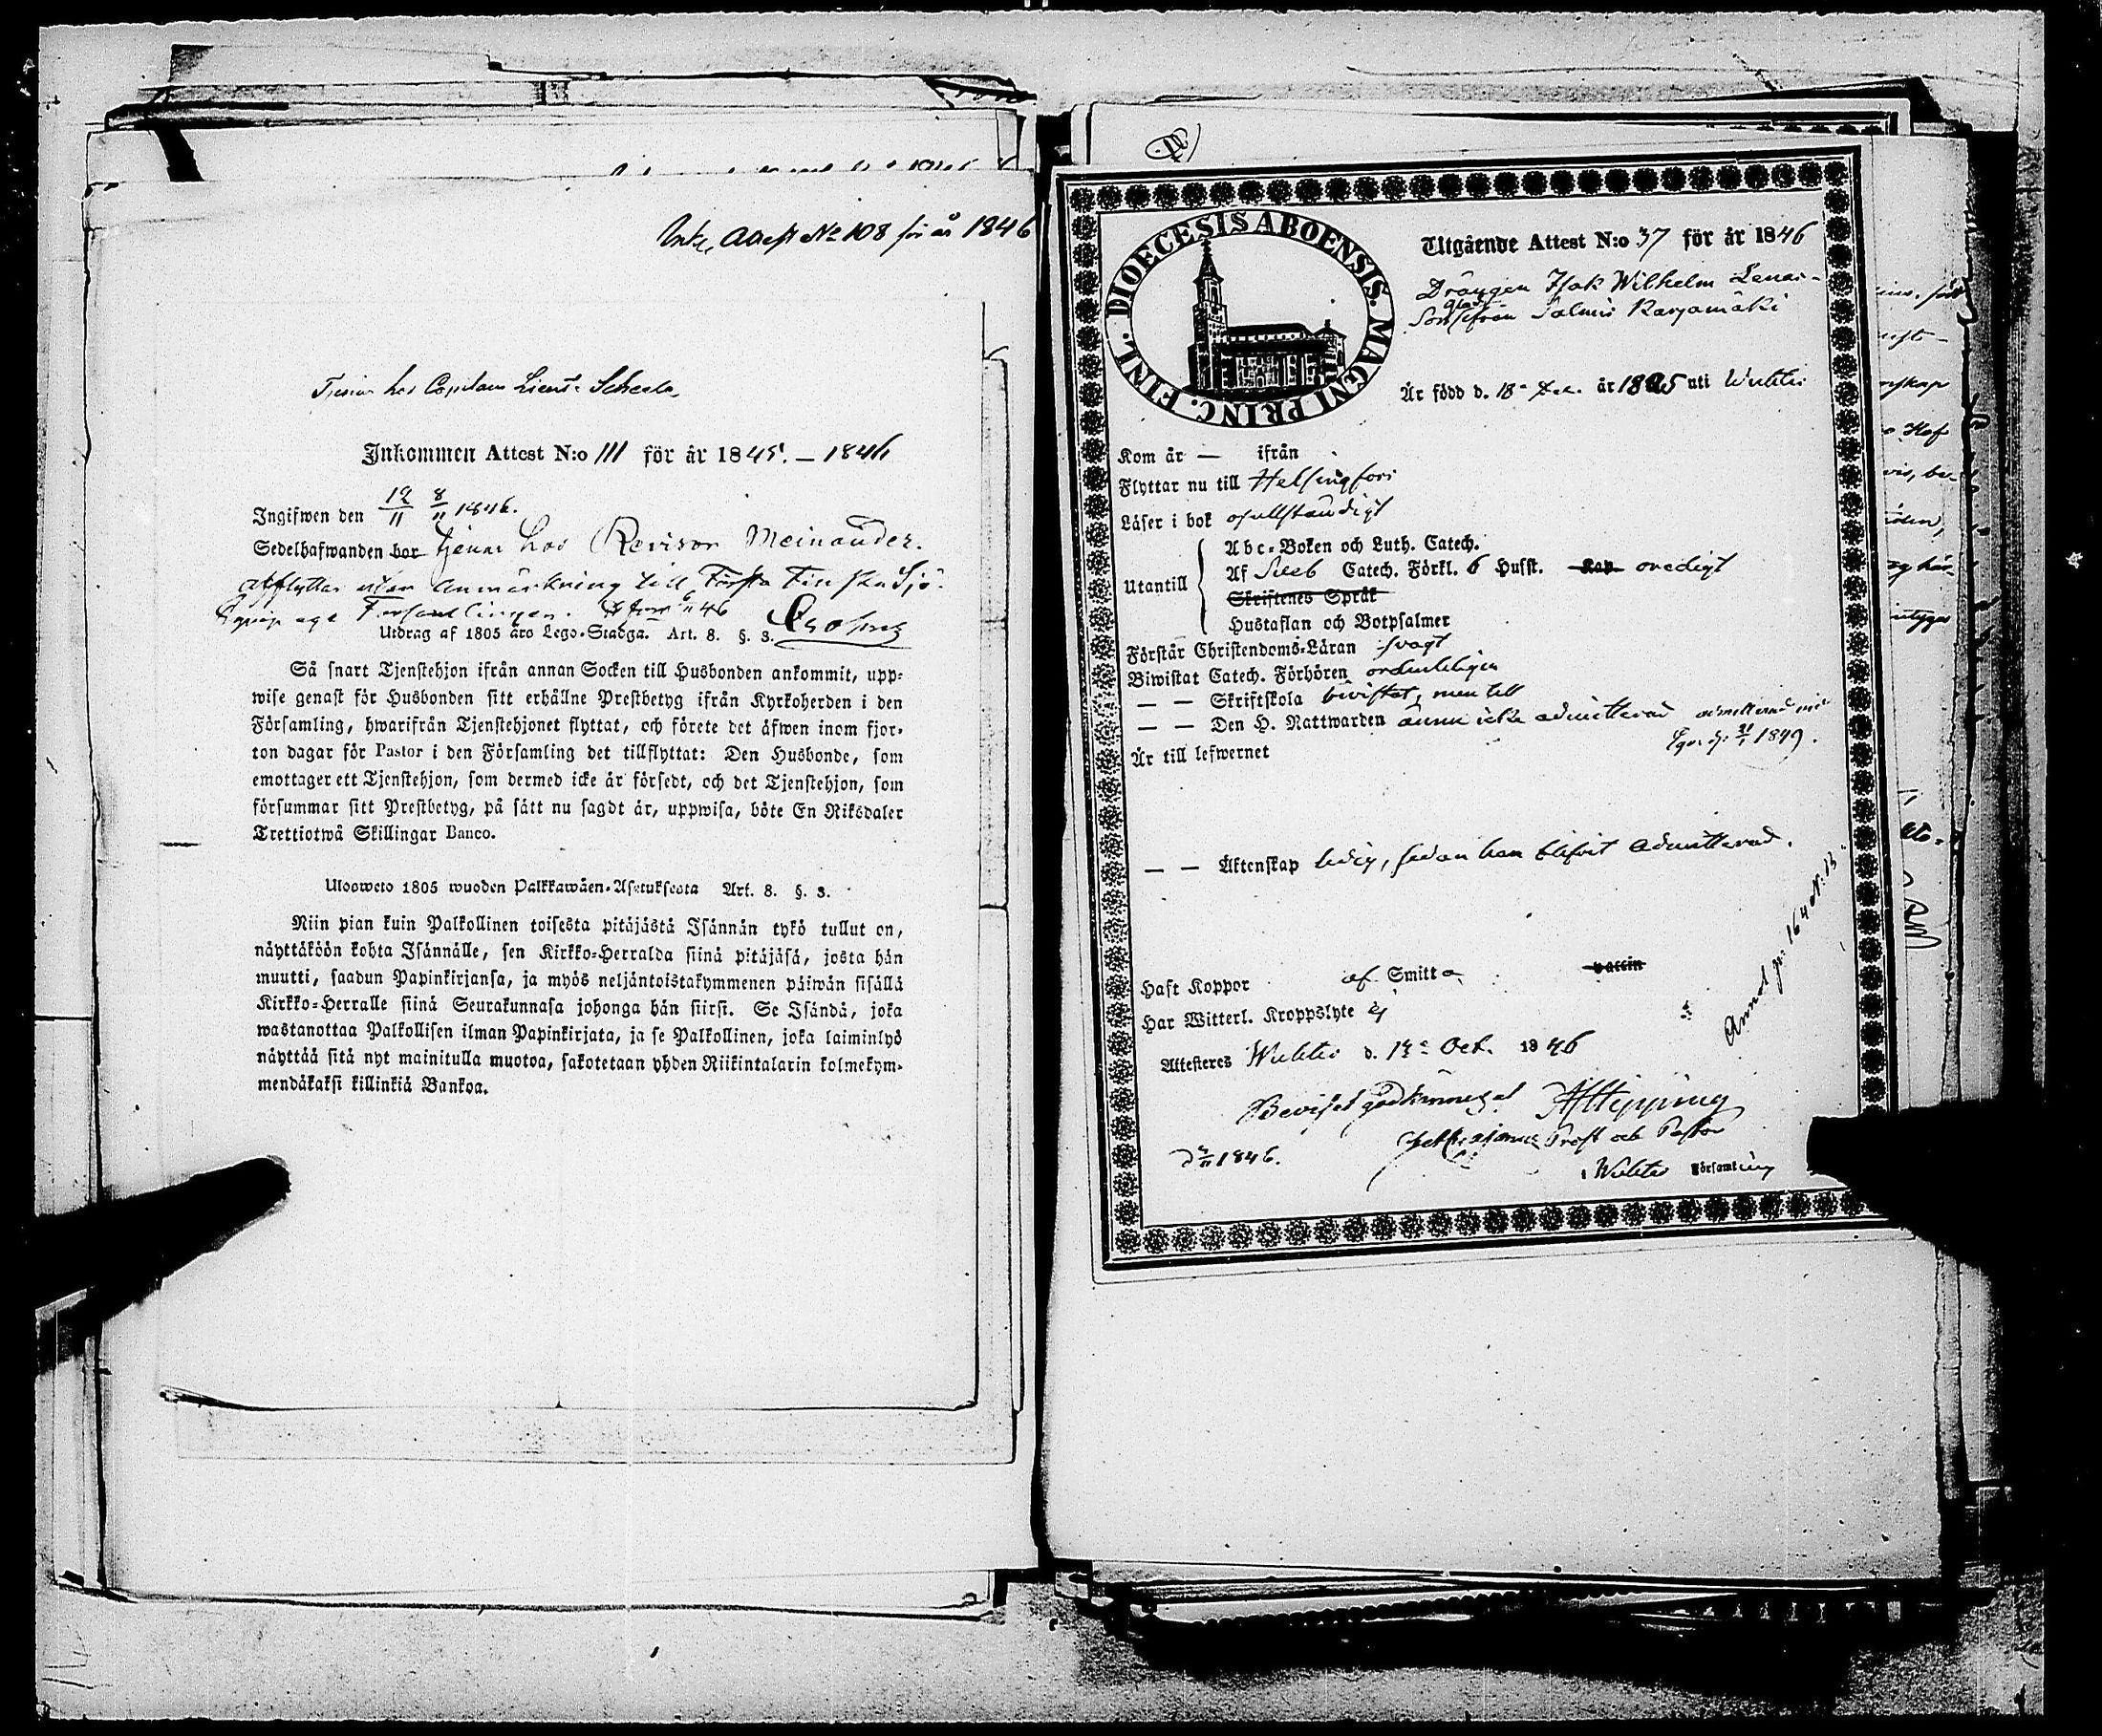 Attest No 108 för år 1846
Tjenar hos Capitain Lieut: Scheele
Inkommen Attest N:o 111 för år 1845. — 1846
Ingifwen den 12/11 8/11 1846.
Sedelhafwanden bor tjenar hos Revisor Meinander.
afflyttar utan anmärkning till Första Finska Sjö
Equipage Församlingen. 46
Utdrag af 1805 års Lego-Stadga. Art. 8. §. 3.
Så snart Tjenstehjon ifrån annan Socken till Husbonden ankommit, upp-
wise genast för Husbonden sitt erhållne Prestbetyg ifrån Kyrkoherden i den
Församling, hwarifrån Tjenstehjonet flyttat, och förete det äfwen inom fjor-
ton dagar för Pastor i den Församling det tillflyttat: Den Husbonde, som
emottager ett Tjenstehjon, som dermed icke är försedt, och det Tjenstehjon, som
försummar sitt Prestbetyg, på sätt nu sagdt är, uppwisa, böte En Riksdaler
Trettiotwå Skillingar Banco.
Ulosweto 1805 wuoden Palkkawäen-Asetuksesta Art. 8. §. 3.
Niin pian kuin Palkollinen toisesta pitäjästä Isännän tykö tullut on,
näyttäköön kohta Isännälle, sen Kirkko-Herralda siinä pitäjäsä, josta hän
muutti, saadun Papinkirjansa, ja myös neljäntoistakymmenen päiwän sisällä
Kirkko-Herralle siinä Seurakunnasa johonga hän siirsi. Se Isändä, joka
wastanottaa Palkollisen ilman Papinkirjata, ja se Palkollinen, joka laiminlyö
näyttää sitä nyt mainitulla muotoa, sakotetaan yhden Riikintalarin kolmekym-
mendäkaksi killinkiä Bankoa.
DIOECESIS ABOENSIS. MAGNI PRINC. FINL.
Utgående Attest N:o 37 för år 1846
Drängen Isak Wilhelm Lenas-
son ifrån Salmis Karjamäki
Är född d. 18 år 1825 uti Wichtis
Kom år — ifrån
Flyttar nu till Helsingfors
Läser i bok ofullständigt
Utantill
Abc-Boken och Luth. Catech.
Af Sveb Catech. Förkl. 6 Hufst. Kap. oredigt
Skriftenes Språk
Hustaflan och Botpsalmer
Förstår Christendoms-Läran svagt
Biwistat Catech. Förhören ordenteligen
— — Skriftskola bivistat, men till
— — Den H. Nattwarden ännu icke admitterad admitterad
1849.
Är till lefwernet
— — Äktenskap ledig, sedan han blifvit admitterad.
Haft Koppor af Smitta vaccin
Har Witterl. Kroppslyte ej
Annot. p: 164 N: 13
Attesteres Wichtis d. 12 Oct. 1846
Beviset godkännes af
d 1846. Prost och Pastor
i Wichtis Församling